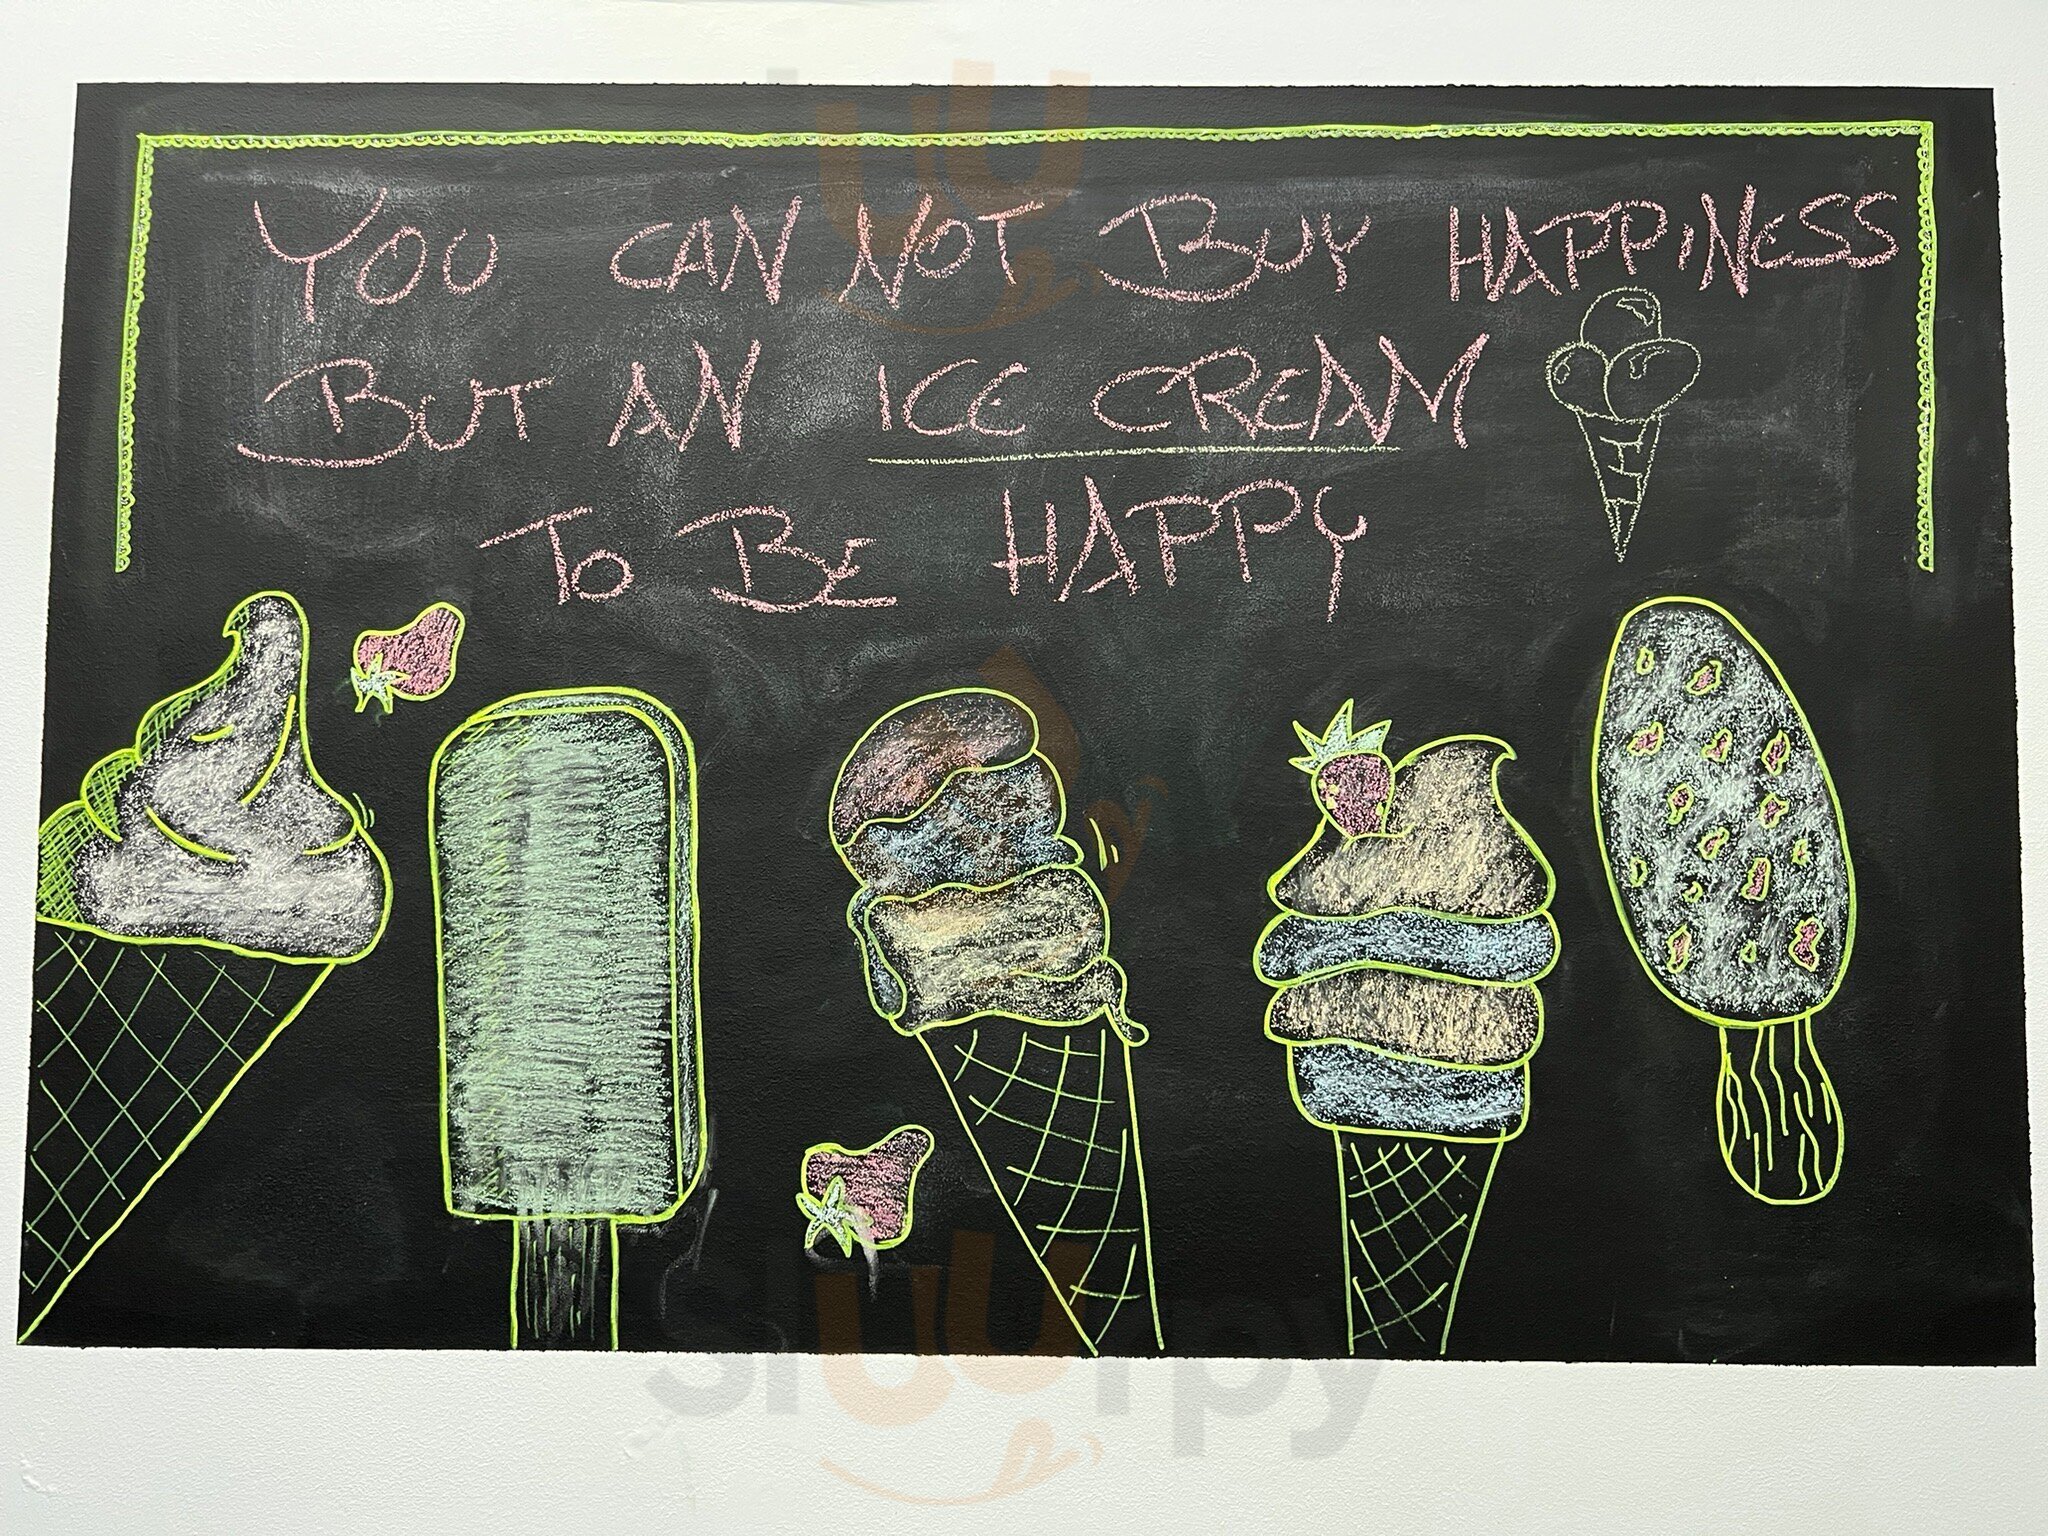 YOU CAN NOT BUY HAPPINESS
BUT AN ICE CREAM
TO BE HAPPY
sluurpy